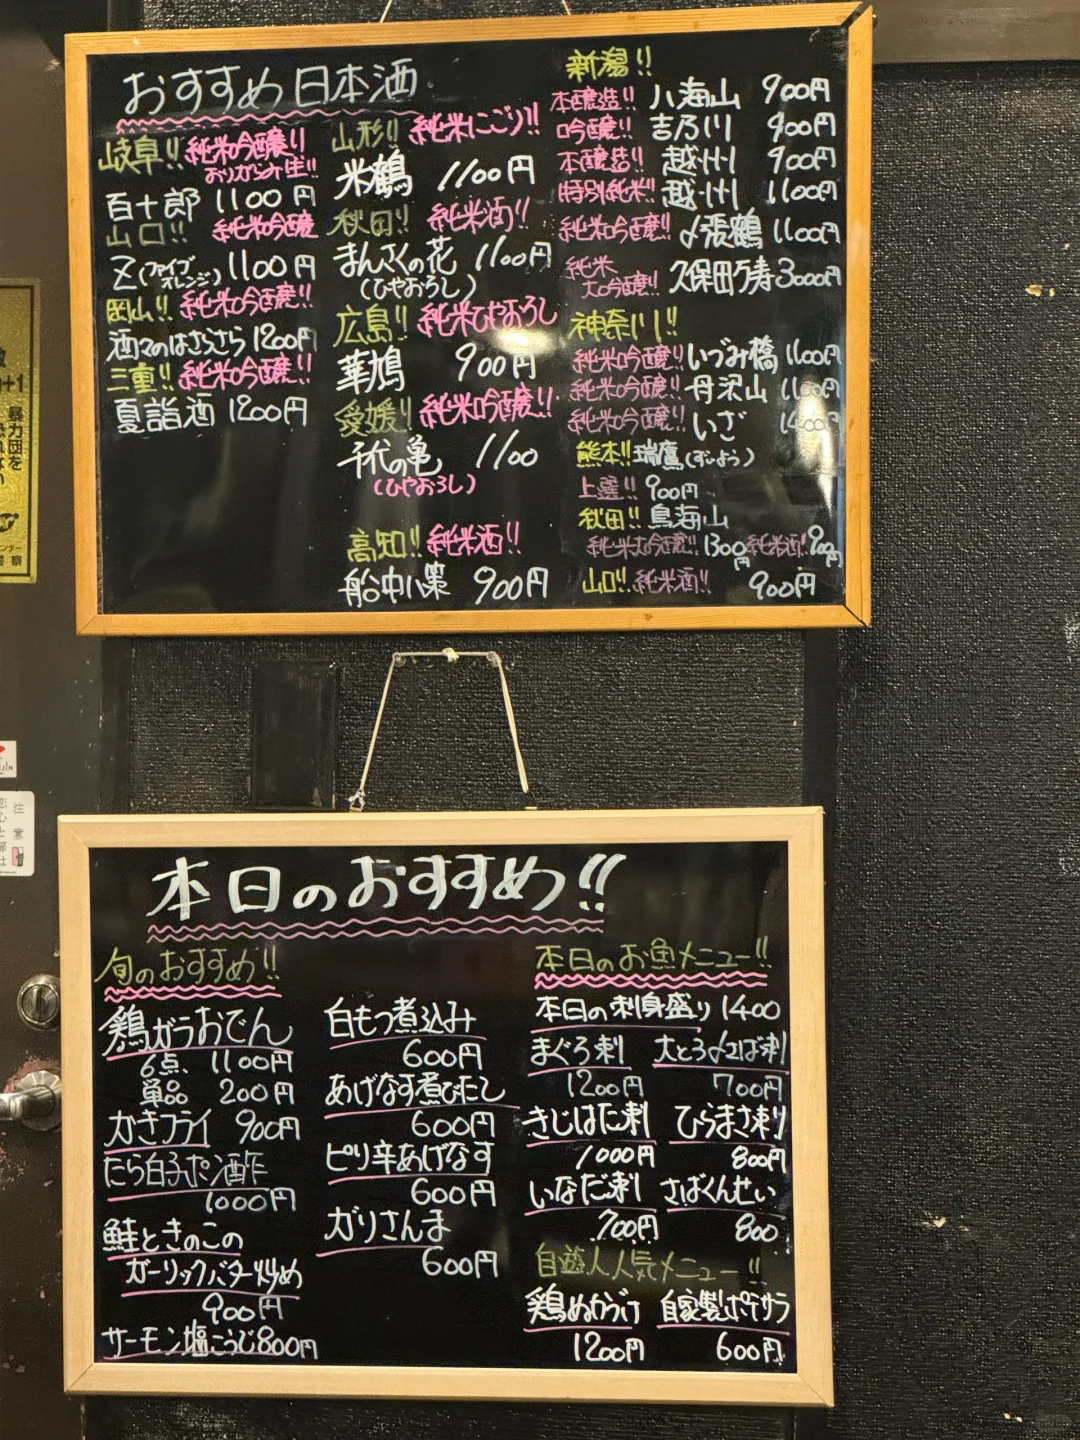 おすすめ日本酒
岐阜!! 純米吟醸!!
おりがらみ生!!
百十郎 1100円
山口!! 純米吟醸
Z(ファイブオレンジ) 1100円
岡山!! 純米吟醸!!
酒々のはさらさら 1200円
三重!! 純米吟醸!!
夏詣酒 1200円
山形!! 純米にごり!!
米鶴 1100円
秋田!! 純米酒!!
まんさくの花 1100円
(ひやおろし)
広島!! 純米ひやおろし
華鳩 900円
愛媛!! 純米吟醸!!
千代の亀 1100
(ひやおろし)
高知!! 純米酒!!
船中八策 900円
新潟!!
本醸造!! 八海山 900円
吟醸!! 吉乃川 900円
本醸造!! 越州 900円
特別純米!! 越州 1100円
純米吟醸!! 〆張鶴 1100円
純米大吟醸!! 久保田万寿 3000円
神奈川!!
純米吟醸!! いづみ橋 1100円
純米吟醸!! 丹沢山 1100円
純米吟醸!! いざ
熊本!! 瑞鷹(ずいよう)
上選!! 900円
秋田!! 鳥海山
純米大吟醸!! 1300円 純米酒!! 900円
山口!! 純米酒!! 900円
本日のおすすめ!!
旬のおすすめ!!
鶏ガラおでん
6点 1100円
単品 200円
かきフライ 900円
たら白子ポン酢
1000円
鮭ときのこの
ガーリックバター炒め
900円
サーモン塩こうじ 800円
白もつ煮込み
600円
あげなす煮びたし
600円
ピリ辛あげなす
600円
ガリさんま
600円
本日のお魚メニュー!!
本日の刺身盛り 1400
まぐろ刺 大とろ〆さば刺
1200円 700円
きじはた刺 ひらまさ刺
1000円 800円
いなだ刺 さばくんせい
700円 800
自遊人人気メニュー!!
鶏ぬかづけ 自家製ポテサラ
1200円 600円